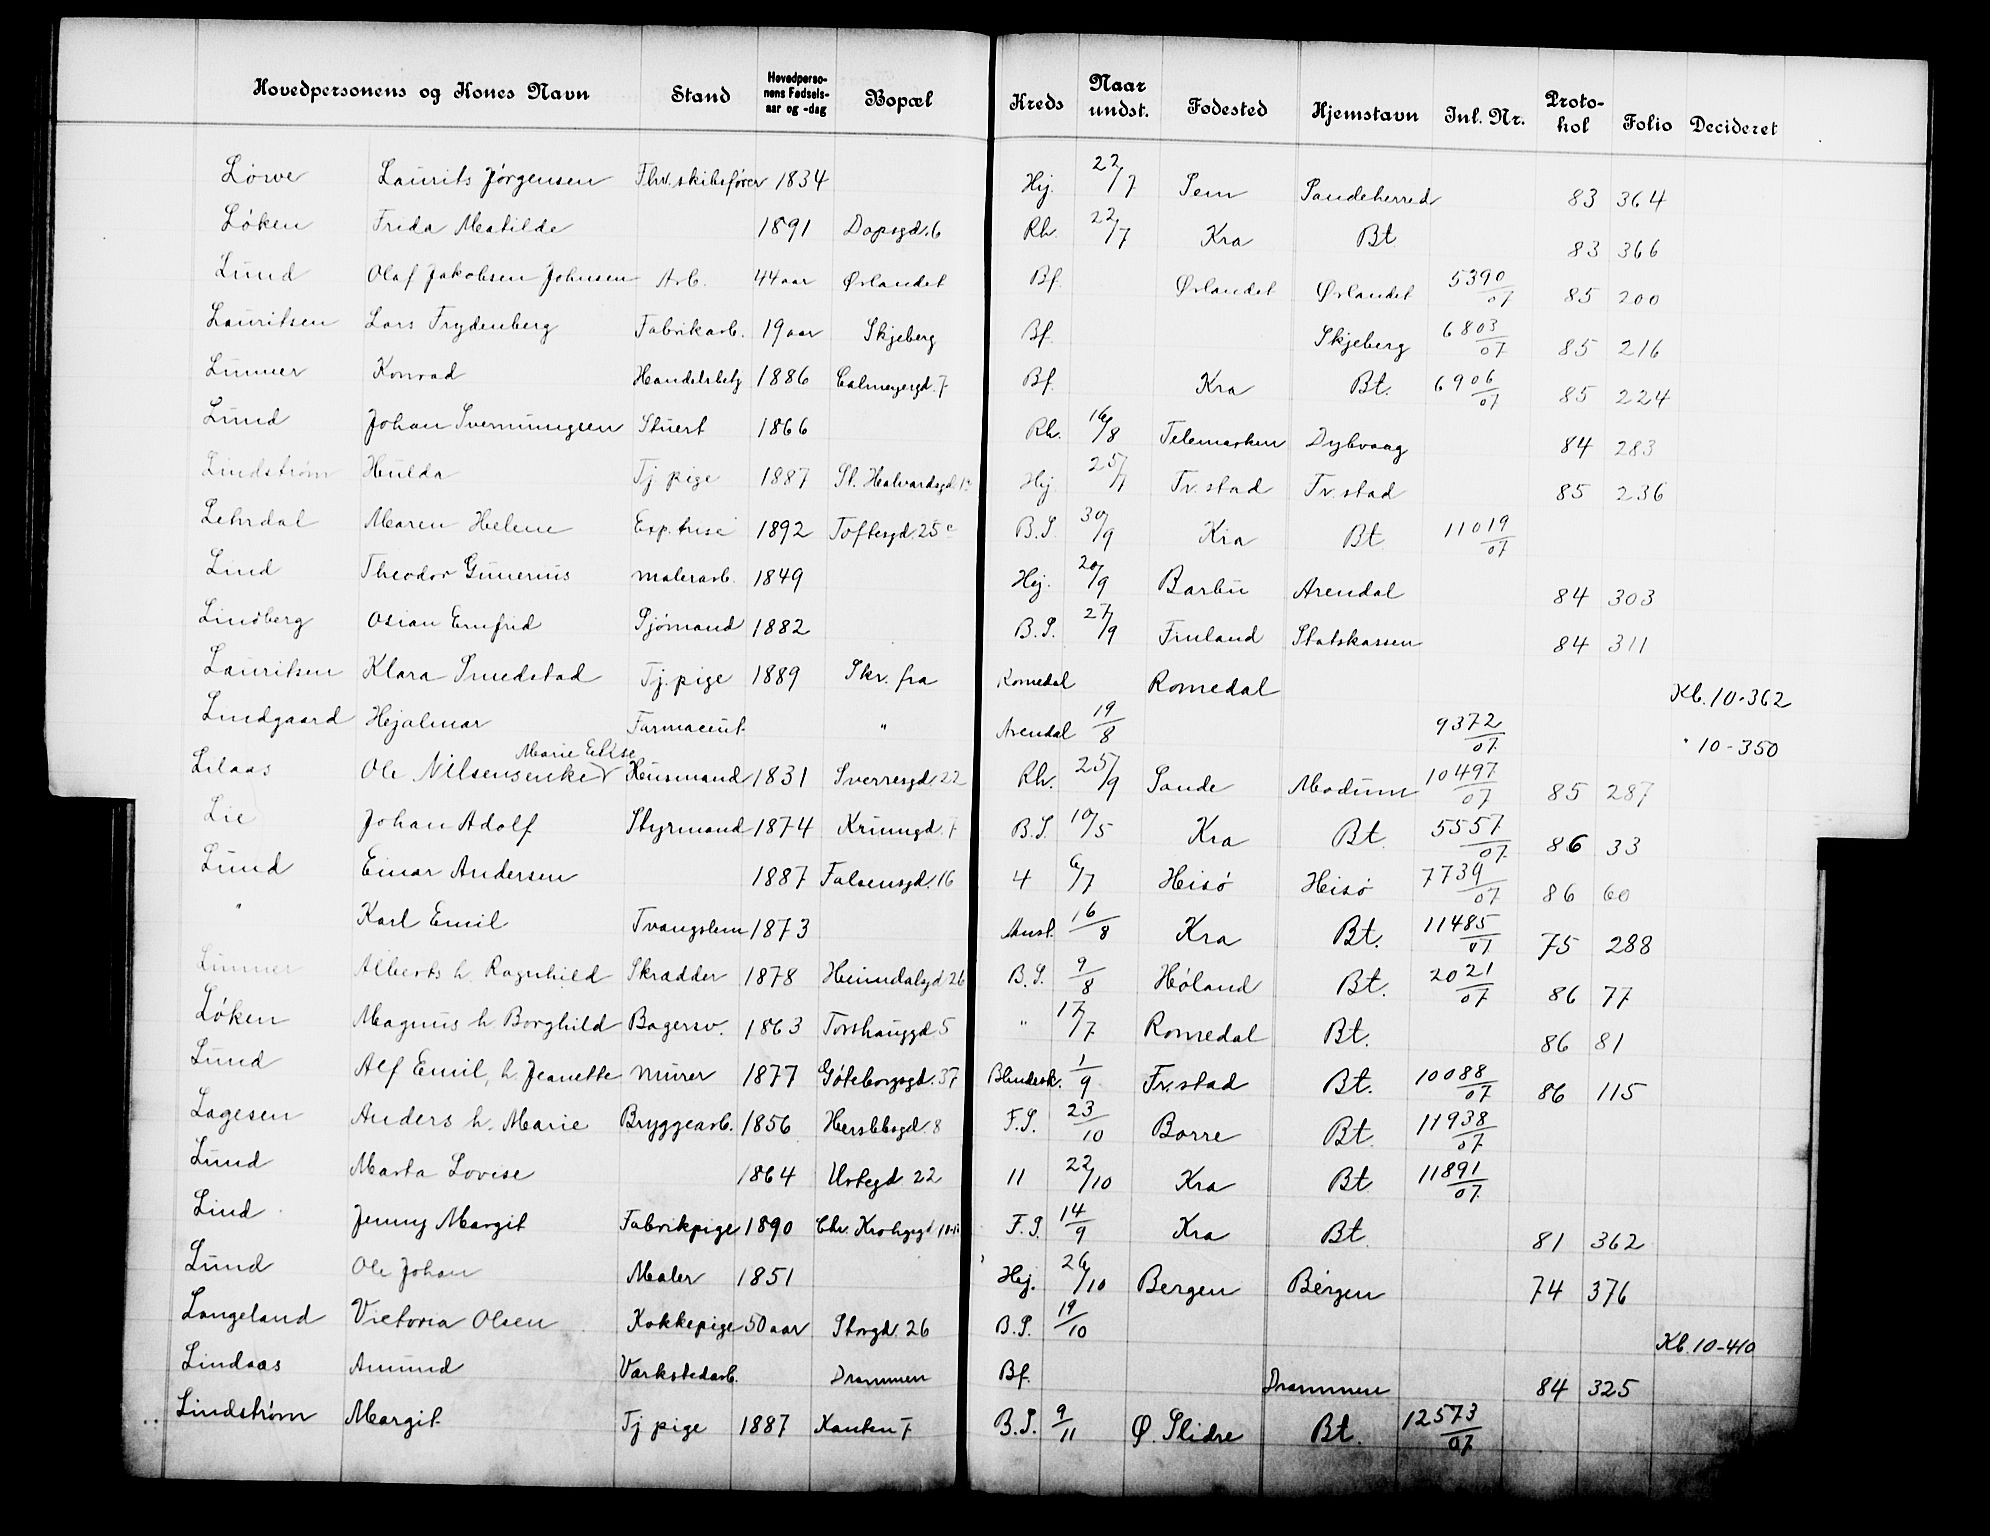 Hovedpersonens og Kones Navn Stand Hovedpersonens Fødselsaar og -dag Bopæl Kreds Naar undst. Fødested Hjemstavn Inl. Nr. Protokol Folio Decideret
Löwe Laurits Jørgensen Fhv. skibsfører 1834 Hj. 22/7 Sem Sandeherred 83 364
Løken Frida Matilde 1891 Dopsgd. 6 Rh. 22/7 Kra Bt 83 366
Lund Olaf Jakobsen Johnsen Arb. 44 aar Ørlandet Bf. Ørlandet Ørlandet 5390/07 85 200
Lauritsen Lars Frydenberg Fabrikarb. 19 aar Skjeberg Bf. Skjeberg 6803/07 85 216
Lunner Konrad Handelsbetj 1886 Calmeyergd. 7 Bf. Kra Bt. 6906/07 85 224
Lund Johan Svennungsen Stuert 1866 Rh. 16/8 Telemarken Dybvaag 84 283
Lindstrøm Hulda Tj. pige 1887 St. Halvardsgd. Hj. 25/7 Fr.stad Fr.stad 85 236
Lehrdal Maren Helene Exp. trise 1892 Toftesgd. 25 c B.S. 30/9 Kra Bt 11019/07
Lind Theodor Gunerius Malerarb. 1849 Hj. 20/9 Barbu Arendal 84 303
Lindberg Osian Ernfrid Sjømand 1882 B.S. 27/9 Finland Statskassen 84 311
Lauritsen Klara Smedstad Tj. pige 1889 Skr. fra Romedal Romedal Kb. 10-362
Lindgaard Hjalmar Farmaceut " Arendal 19/8 9372/07 " 10-350
Lilaas Ole Nilsen enke Marie Elise Husmand 1831 Sverresgd. 22 Rh. 25/9 Sande Modum 10497/07 85 287
Lie Johan Adolf Styrmand 1874 Krumgd. 7 B.S. 10/5 Kra Bt. 5557/07 86 33
Lund Einar Andersen 1887 Falsensgd. 16 4 6/7 Hisø Hisø 7739/07 86 60
" Karl Emil Tvangslem 1873 Anst. 16/8 Kra Bt. 11485/07 75 288
Linner Alberts h. Ragnhild Skrædder 1878 Heimdalsgd 26 B.S. 9/8 Høland Bt. 2021/07 86 77
Løken Magnus h. Borghild Bagersv. 1863 Torshauggd 5 " 17/7 Romedal Bt. 86 81
Lund Alf Emil, h. Jeanette Murer 1877 Gøteborgsgd. 37 Blindesk. 1/9 Fr.stad Bt. 10088/07 86 115
Lagesen Anders h. Marie Bryggearb. 1856 Herslebsgd. 8 F.S. 23/10 Borre Bt. 11938/07
Lund Marta Lovise 1864 Urtegd 22 11 22/10 Kra Bt 11891/07
Lind Jenny Margit Fabrikpige 1890 Chr. Krohgsgd F.S. 14/9 Kra Bt. 81 362
Lund Ole Johan Maler 1851 Hj. 26/10 Bergen Bergen 74 376
Langeland Victoria Olsen Kokkepige 50 aar Storgd. 26 B.S. 19/10 Kb. 10-410
Lindaas Amund Værkstedarb. Drammen Bf. Drammen 84 325
Lindstrøm Margit Tj. pige 1887 Kanten 7 B.S. 9/11 Ø. Slidre Bt. 12573/07